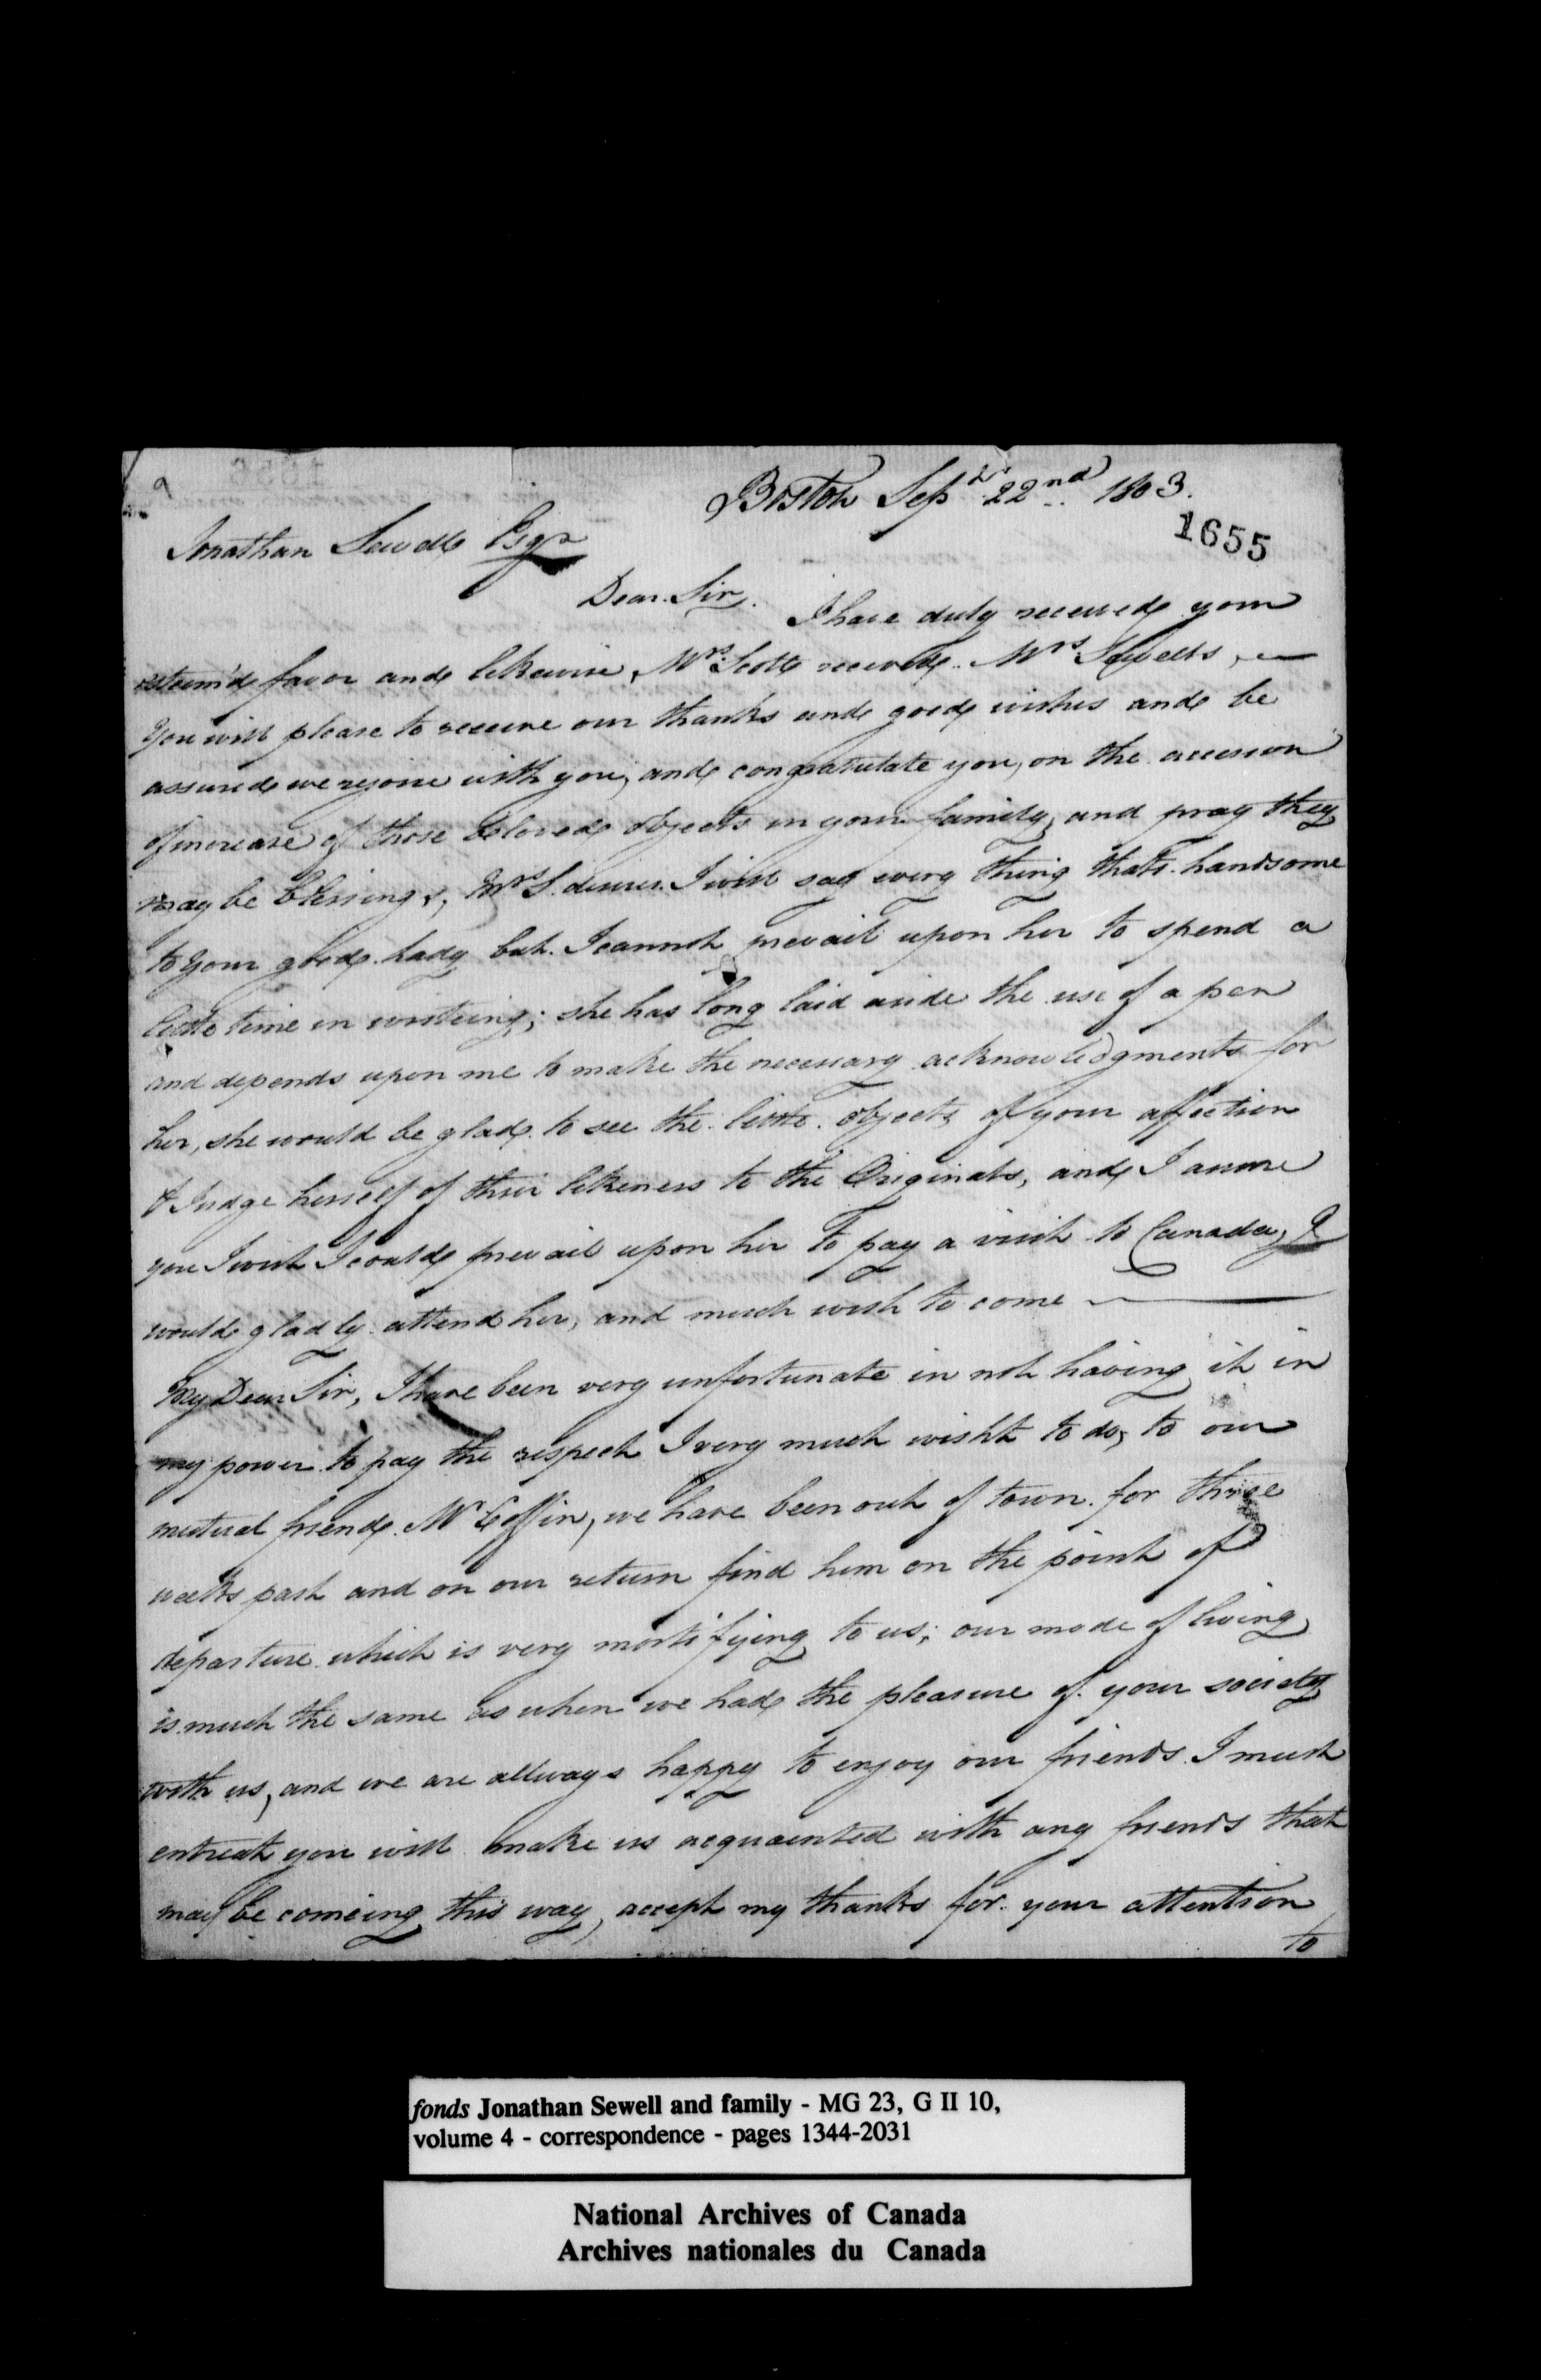 Boston Sepr 22nd 1803.
1655
Jonathan Sewell Esqr
Dear Sir,
I have duly received your
esteem'd favor and likewise, Mrs Scott received Mrs Sewells,
You will please to receive our thanks and good wishes and be
assured we rejoice with you, and congratulate you, on the accession
of increase of those beloved objects in your family, and pray they
may be blessings, Mrs S. desires I will say every thing thats handsome
to your good lady but I cannot prevail upon her to spend a
little time in writeing; she has long laid aside the use of a pen
and depends upon me to make the necessary acknowledgments for
her, she would be glad to see the little objects of your affection
& Judge herself of their likeness to the Originals, and I assure
you I wish I could prevail upon her to pay a visit to Canada, I
would gladly attend her, and much wish to come
My Dear Sir, I have been very unfortunate in not having it in
my power to pay the respect I very much wisht to do, to our
mutual friend Mr Coffin, we have been out of town for three
weeks past and on our return find him on the point of
departure which is very mortifying to us; our mode of living
is much the same as when we had the pleasure of your society
with us, and we are allways happy to enjoy our friends I must
entreat you will make us acquainted with any friends that
may be comeing this way, accept my thanks for your attention
to
fonds Jonathan Sewell and family - MG 23, G II 10,
volume 4 - correspondence - pages 1344-2031
National Archives of Canada
Archives nationales du Canada